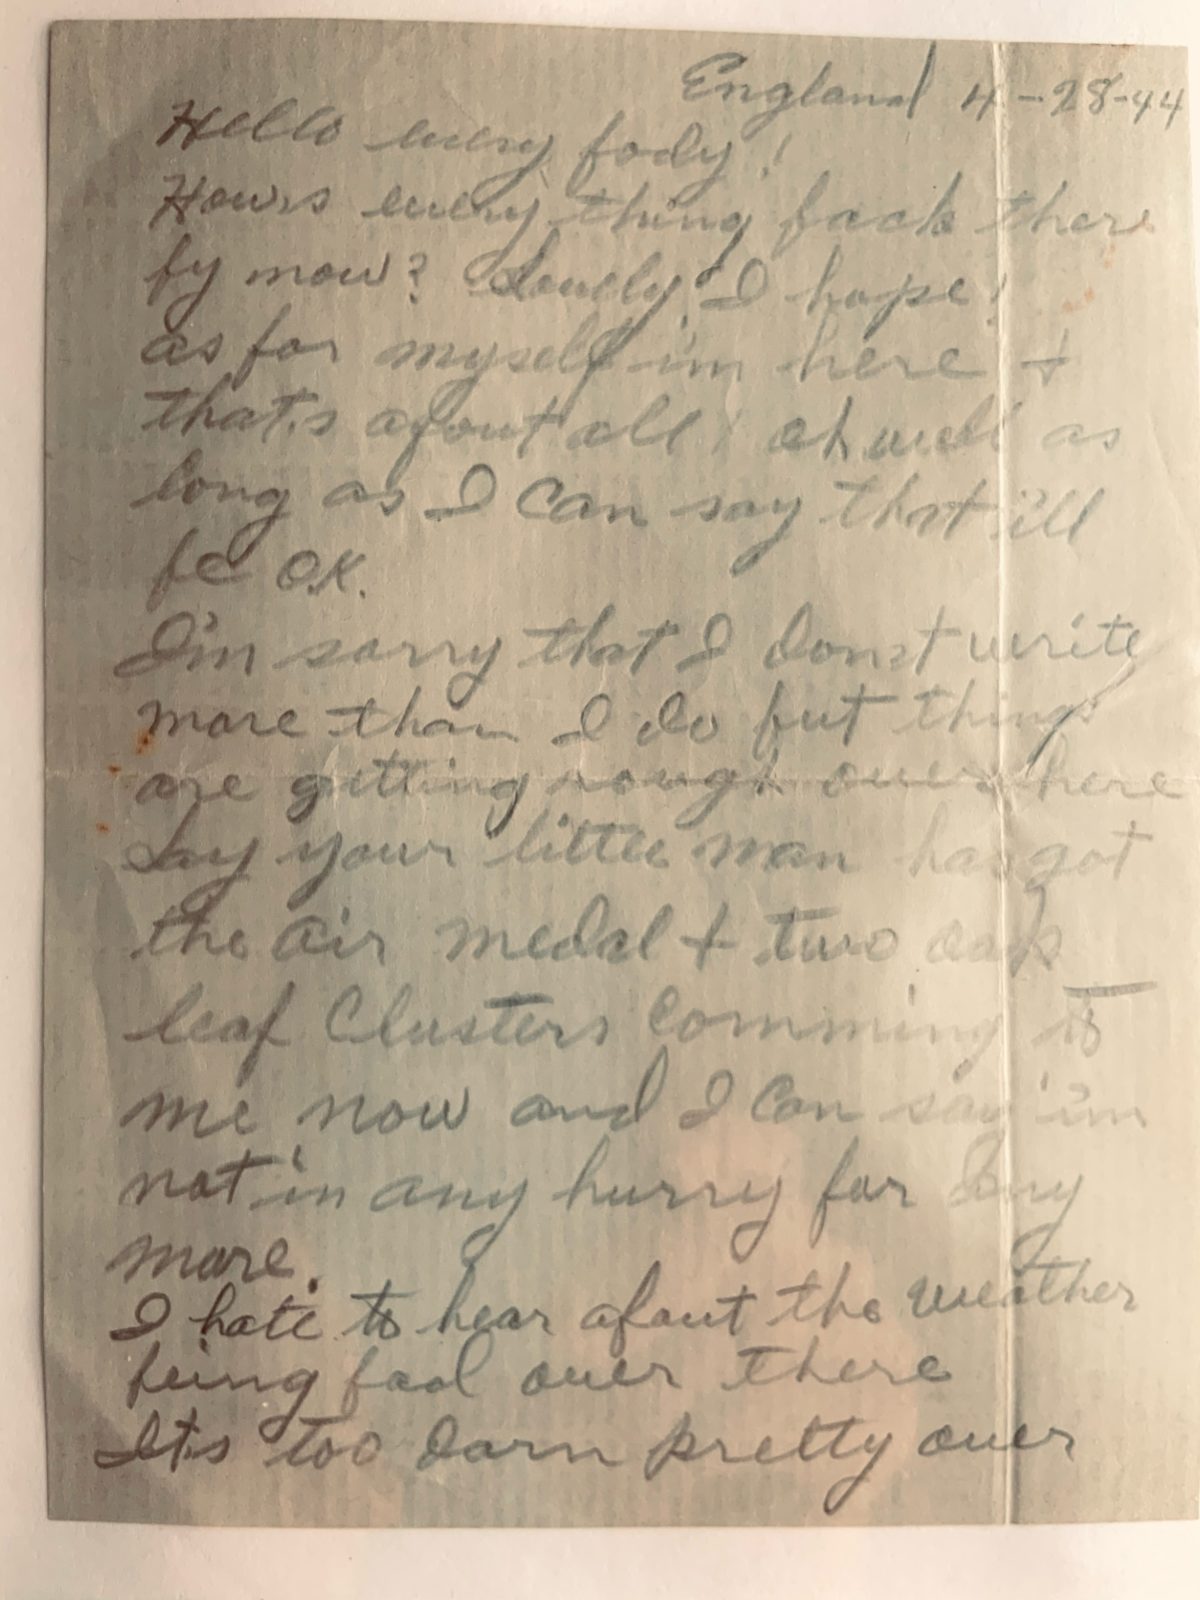 England 4-28-44
Hello every body!
Hows every thing back there
by now? Lovely I hope!
as for myself i'm here +
that's about all! oh well as
long as I can say that i'll
be OK.
I'm sorry that I don't write
more than I do but things
are getting rough over here
Say your little man has got
the air medal + two oak
leaf Clusters comming to
me now and I can say i'm
not in any hurry for any
more.
I hate to hear about the weather
being bad over there
It's too darn pretty over